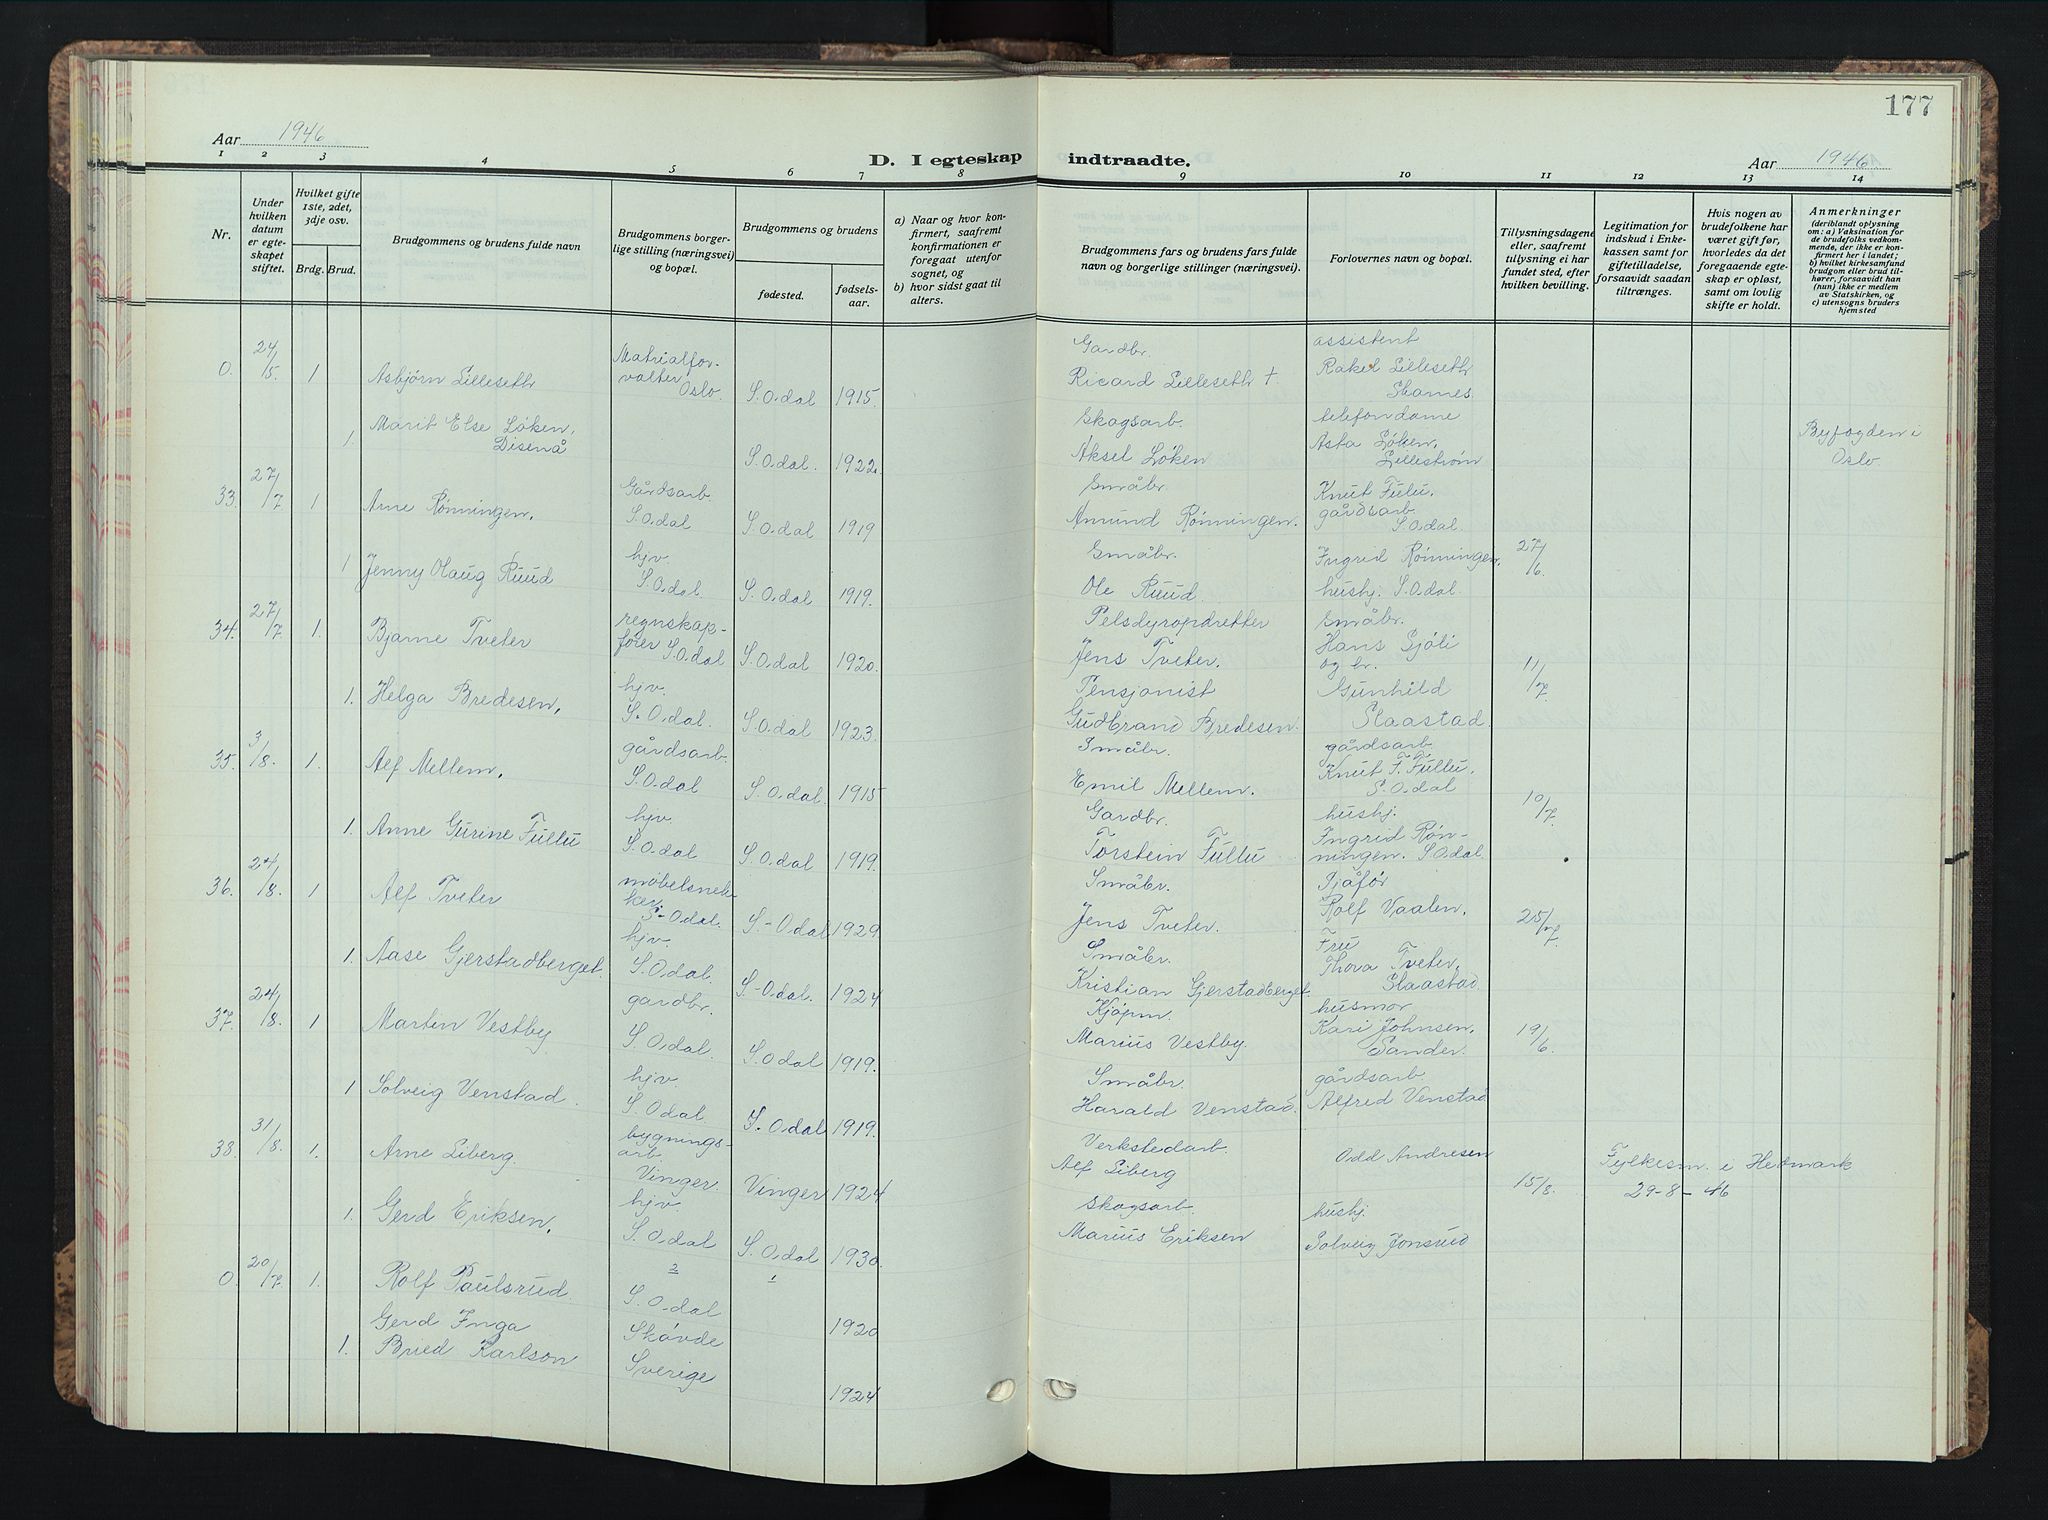 177
Aar 1946
D. I egteskap indtraadte.
Aar 1946
1 2 3 4 5 6 7 8 9 10 11 12 13 14
Nr.
Under hvilken datum er egteskapet stiftet.
Hvilket gifte 1ste, 2det, 3dje osv.
Brdg. Brud.
Brudgommens og brudens fulde navn
Brudgommens borgerlige stilling (næringsvei) og bopæl.
Brudgommens og brudens
fødested.
fødselsaar.
a) Naar og hvor konfirmert, saafremt konfirmationen er foregaat utenfor sognet, og
b) hvor sidst gaat til alters.
Brudgommens fars og brudens fars fulde navn og borgerlige stillinger (næringsvei).
Forlovernes navn og bopæl.
Tillysningsdagene eller, saafremt tillysning ei har fundet sted, efter hvilken bevilling.
Legitimation for indskud i Enkekassen samt for giftetilladelse, forsaavidt saadan tiltrænges.
Hvis nogen av brudefolkene har været gift før, hvorledes da det foregaaende egteskap er opløst, samt om lovlig skifte er holdt.
Anmerkninger
(deriblandt oplysning om: a) Vaksination for de brudefolks vedkommende, der ikke er konfirmert her i landet; b) hvilket kirkesamfund brudgom eller brud tilhører, forsaavidt han (hun) ikke er medlem av Statskirken, og c) utensogns bruders hjemsted
0. 24/5 1 Asbjørn Lilleseth Matrialforvalter Oslo. S.Odal 1915. Gardbr. Ricard Lilleseth † assistent Rakel Lilleseth Skarnes
1. Marit Else Løken, Disenå S.Odal. 1922. Skogsarb. Aksel Løken telefondame Asta Løken, Lillestrøm Byfogden i Oslo.
33. 27/7 1 Arne Rønningen, Gårdsarb. S.Odal S.Odal 1919 Småbr. Amund Rønningen. Knut Fulu, gårdsarb. S.Odal
1 Jenny Olaug Ruud hjv. S.Odal. S.Odal 1919. Småbr. Ole Ruud. Ingrid Rønningen, hushj. S.Odal. 27/6.
34. 27/7. 1. Bjarne Tveter regnskapfører S.Odal S.Odal 1920. Pelsdyropdretter Jens Tveter. småbr. Hans Sjöli og br.
1. Helga Bredesen, hjv. S.Odal. S.Odal 1923. Pensjonist Gudbrand Bredesen. Gunhild Slaastad. 11/7.
35. 3/8. 1. Alf Mellem, gårdsarb. S.Odal S.Odal. 1915 Småbr. Emil Mellem. gårdsarb. Knut T. Fullu, S.Odal
1. Anne Gurine Fullu hjv. S.Odal S.Odal 1919. Gardbr. Torstein Fullu hushj. Ingrid Rønningen. S.Odal. 10/7.
36. 24/8. 1 Alf Tveter møbelsnekker, S-Odal. S.-Odal 1929 Småbr. Jens Tveter. Sjåfør Rolf Vaalen. 25/7.
1. Aase Gjerstadberget hjv. S.Odal. S.-Odal. 1924 Småbr. Kristian Gjerstadberget Fru Thora Tveter, Slaastad
37. 24/8. 1 Martin Vestby gardbr. S.Odal. S.Odal 1919. Kjøpm. Marius Vestby. husmor Kari Johnsen, Sander. 19/6.
1 Solveig Venstad. hjv. S.Odal S.Odal 1919. Småbr. Harald Venstad. gårdsarb Alfred Venstad
38. 31/8. 1. Arne Liberg. bygningsarb. Vinger. Vinger 1924 Verkstedarb. Alf Liberg Odd Andresen 15/8. Fylkesm. i Hedmark 29-8-46
1. Gerd Eriksen, hjv. S.Odal S.Odal 1930. skogsarb. Marius Eriksen hushj. Solveig Jonsrud
0. 20/7. 1. Rolf Paulsrud. ? S.Odal 1920
1. Gerd Inga Karlson Skövde Sverige 1924